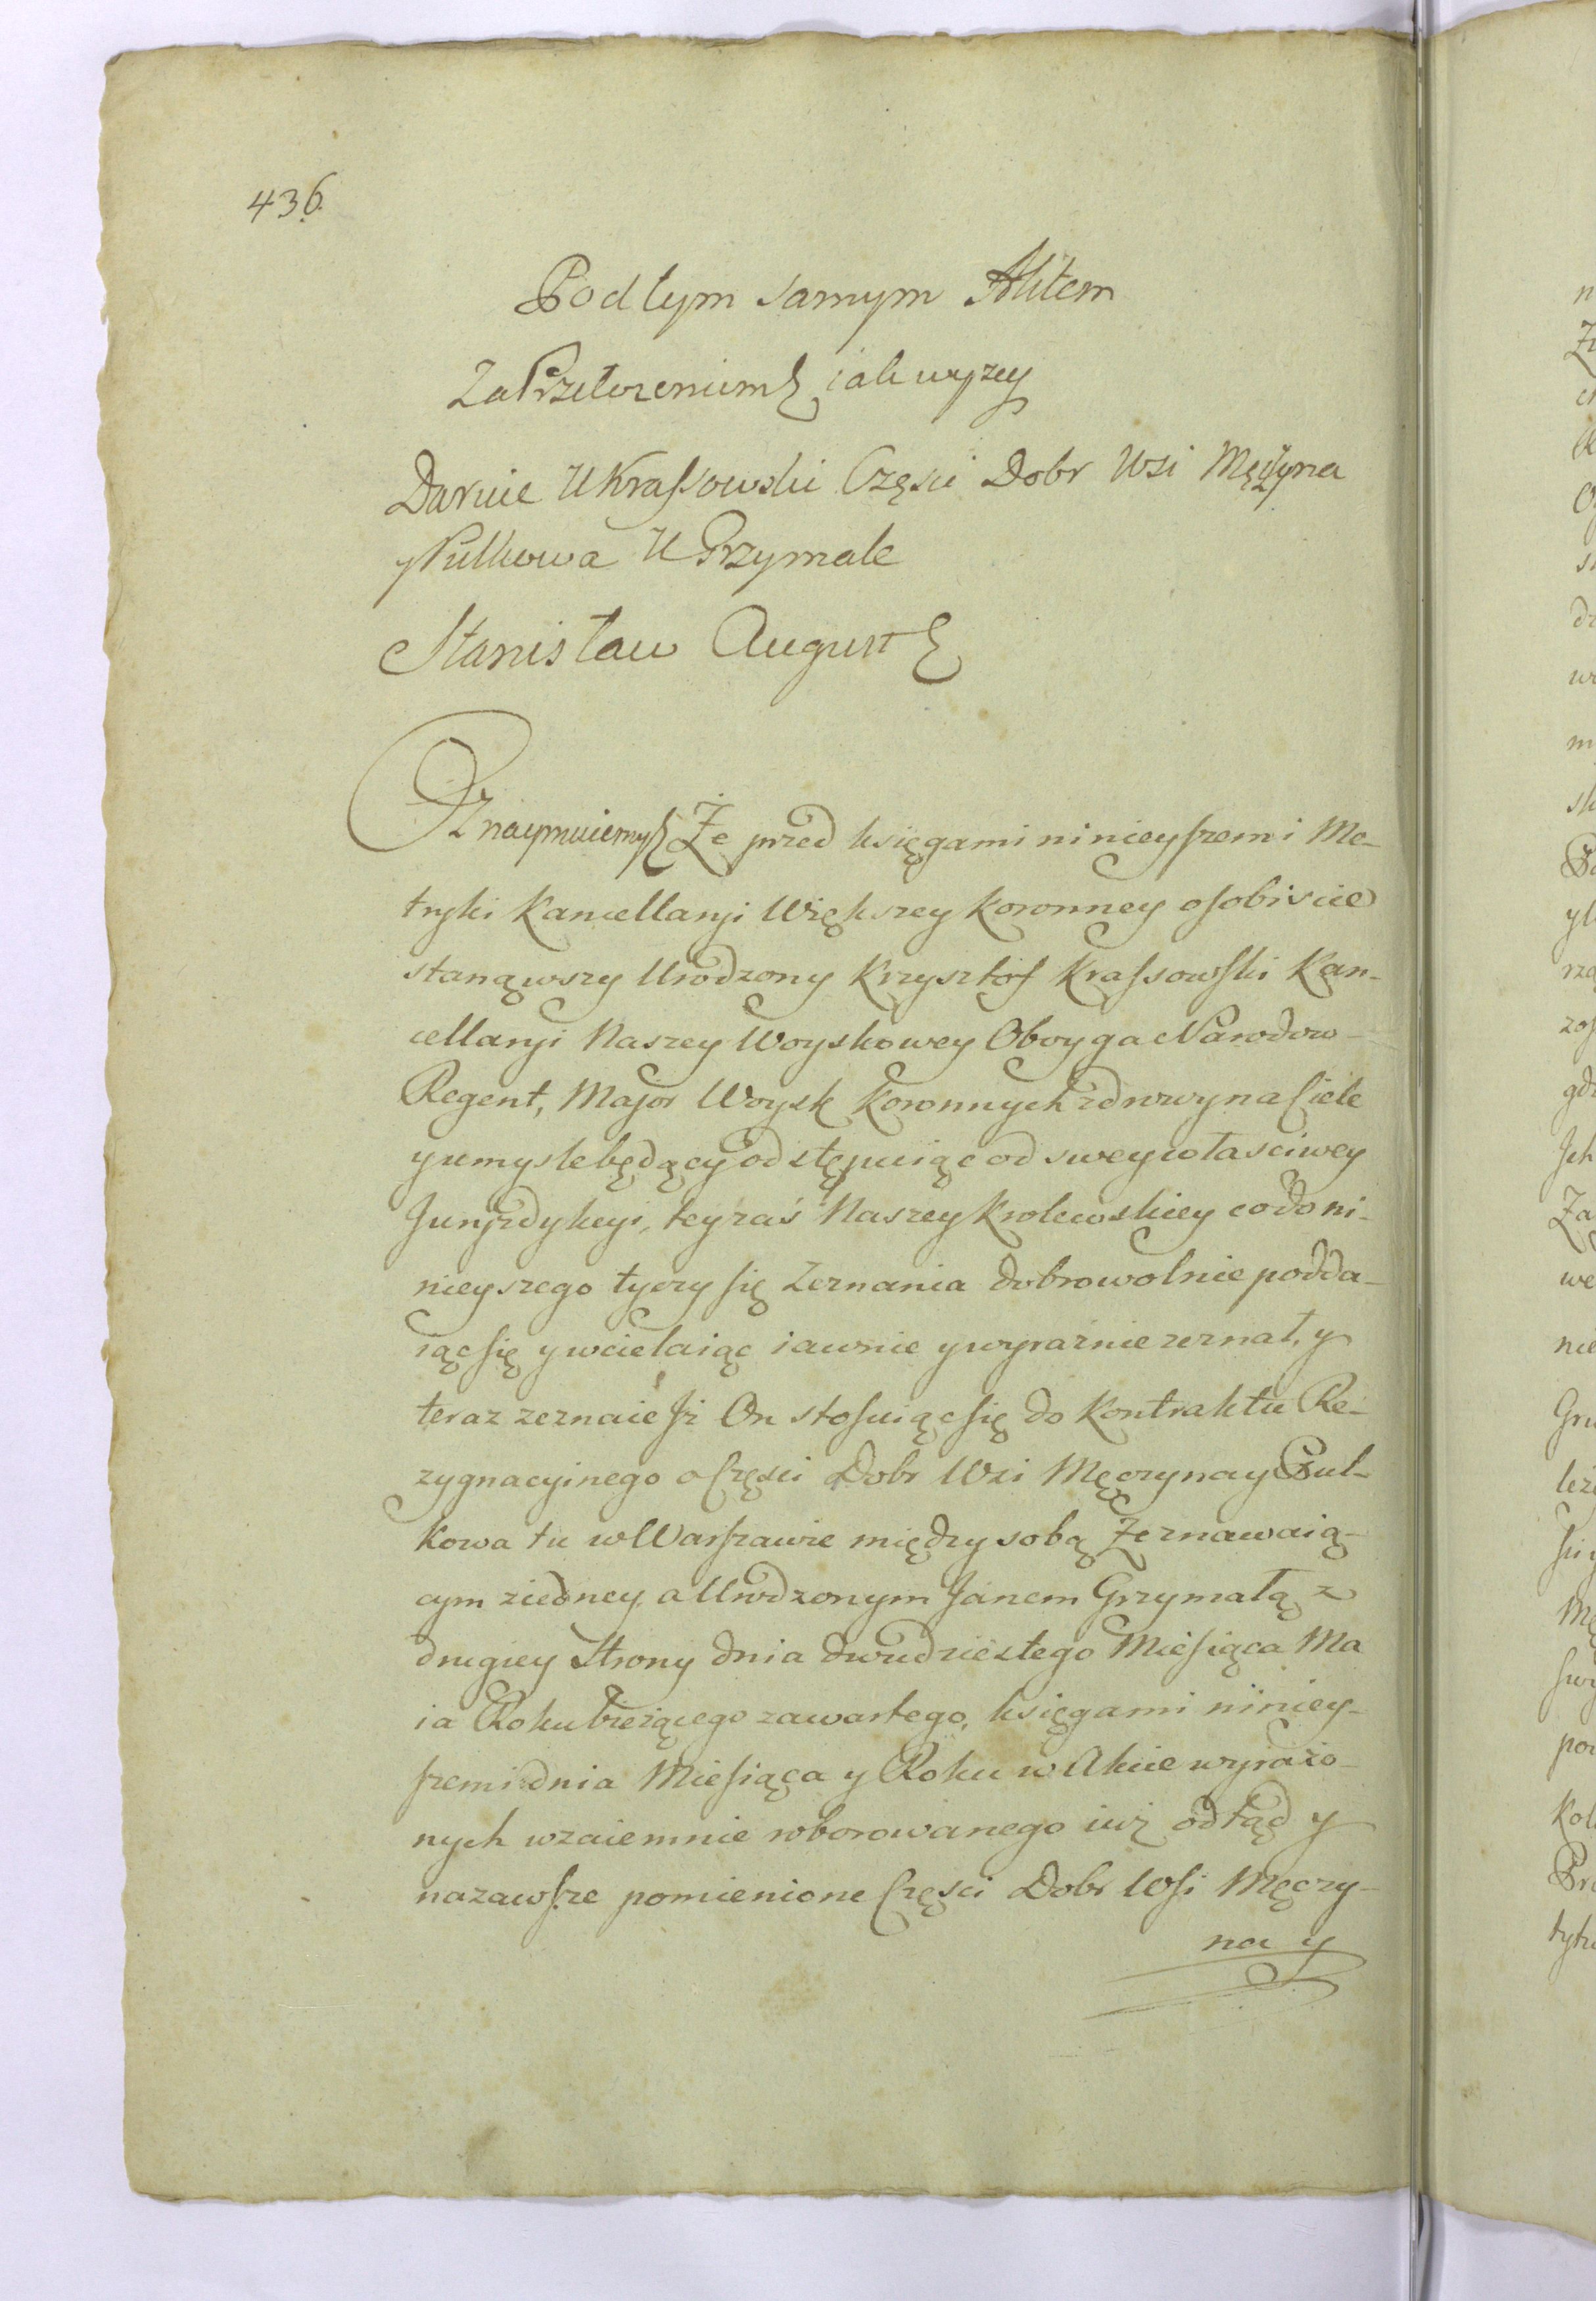 436.
Pod tym samym Aktem
Za Przełożeniem iak wyzey
Daruie U Krassowski Części Dobr Wsi Męczyna
y Pulkowa U Grzymale
Stanisław August
Oznaymuiemy Że przed księgami ninieyszemi Me-
tryki Kancellaryi Większey Koronney osobiscie
stanąwszy Urodzony Krzysztof Krassowski Kan-
cellaryi Naszey Woyskowey Oboyga Narodow
Regent, Major Woysk Koronnych zdrowy na Ciele
y umysle będący odstępuiąc od swey własciwey
Juryzdykcyi, tey zaś Naszey Krolewskiey co do ni-
nieyszego tyczy się Zeznania dobrowolnie podda-
iąc się y wcielaiąc iawnie y wyraźnie zeznał, y
teraz zeznaie Jż On stosuiąc się do Kontraktu Re-
zygnacyinego o Części Dobr Wsi Męczyna y Pul-
kowa tu w Warszawie między sobą Zeznawaią-
cym z iedney, a Urodzonym Janem Grzymałą z
drugiey Strony dnia dwudziestego Miesiąca Ma
ia Roku bieżącego zawartego, księgami niniey-
szemi dnia Miesiąca y Roku w Akcie wyrażo-
nych wzaiemnie roborowanego iuż odtąd y
nazawsze pomienione Części Dobr Wsi Męczy-
na y